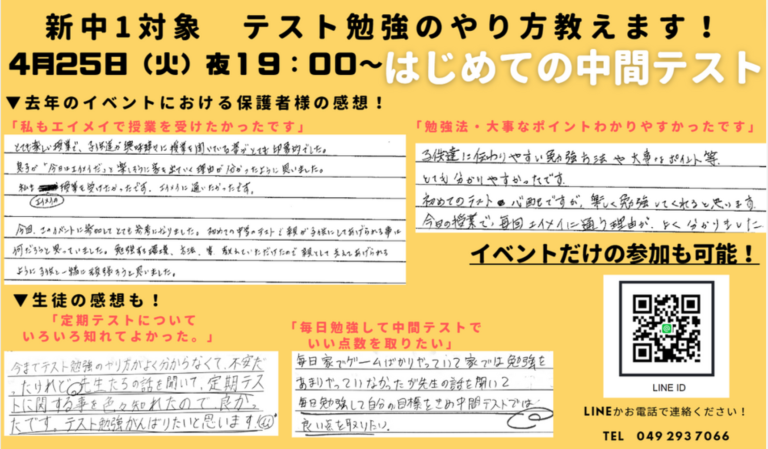 新中1対象　テスト勉強のやり方教えます！
4月25日（火）夜19：00〜はじめての中間テスト
▼去年のイベントにおける保護者様の感想！
「私もエイメイで授業を受けたかったです」
とても楽しい授業で、子供達が興味持って授業を聞いている姿がとても印象的でした。
息子が"今日はエイメイだっ"と楽しそうに家を出ていく理由が分かったように思いました。
私も授業を受けたかったです、エイメイに通いたかったです。
エイメイの
今回、このイベントに参加してとても参考になりました。初めての中学のテストで親が子供にしてあげられる事は
何だろうと思っていました。勉強する環境、方法、等教えていただけたので親として支えてあげられる
ように子供と一緒に頑張ろうと思いました。
「勉強法・大事なポイントわかりやすかったです」
子供達に伝わりやすい勉強方法や大事なポイント等
とても分かりやすかったです。
初めてのテスト心配ですが、楽しく勉強してくれると思います
今日の授業で毎回エイメイに通う理由が、よく分かりました
イベントだけの参加も可能！
▼生徒の感想も！
「定期テストについて
いろいろ知れてよかった。」
今までテスト勉強のやり方がよく分からなくて、不安だ
ったけれど、先生たちの話を聞いて、定期テス
トに関する事を色々知れたので良かっ
たです。テスト勉強がんばりたいと思います。
「毎日勉強して中間テストで
いい点数を取りたい」
毎日家でゲームばかりやっていて家では勉強を
あまりやっていなかったが先生の話を聞いて
毎日勉強して自分の目標をきめ中間テストでは
良い点を取りたい。
LINE ID
LINEかお電話で連絡ください！
TEL 049 293 7066